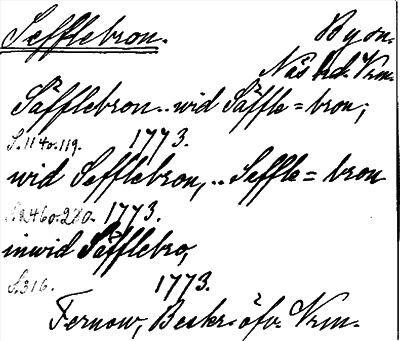 Sefflebron. By sn.
Näs hd. Vrm.
Säfflebron .. wid Säffle=bron;
S. 114 o. 119. 1773.
wid Sefflebron, .. Seffle=bron
S. 246 o. 280. 1773.
inwid Säfflebro,
S. 316. 1773.
Fernow, Beskr. öfv. Vrm.